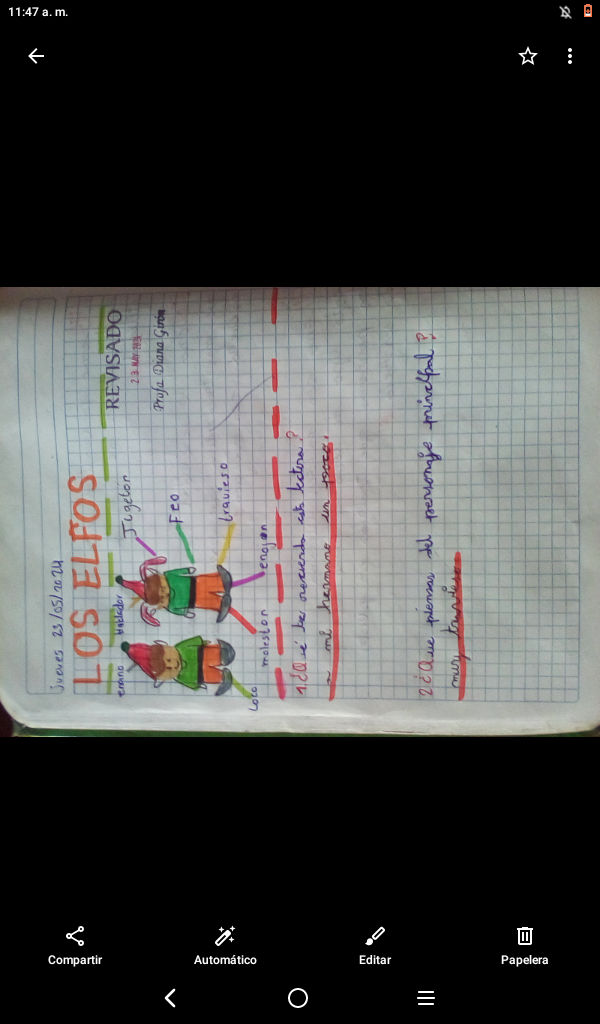 11:47 a. m.
Jueves 23/05/2024
LOS ELFOS
REVISADO
23 MAY 2024
Profa Diana Girón
enano
hablador
Jugeton
Feo
travieso
enojon
moleston
Loco
1.¿Qué te recuerda esta lectura?
a mi hermano un poco.
2.¿Que piensas del personaje principal?
muy travieso.
Compartir
Automático
Editar
Papelera